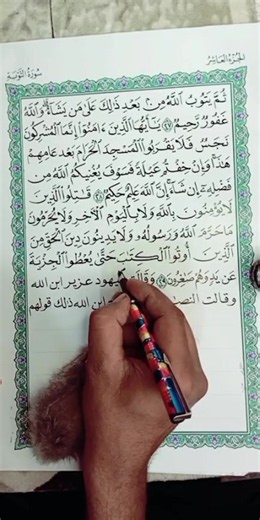 الجزء العاشر
سورة التوبة
ثُمَّ يَتُوبُ ٱللَّهُ مِنۢ بَعْدِ ذَٰلِكَ عَلَىٰ مَن يَشَآءُ وَٱللَّهُ
غَفُورٌ رَّحِيمٌ ٢٧ يَٰٓأَيُّهَا ٱلَّذِينَ ءَامَنُوٓا۟ إِنَّمَا ٱلْمُشْرِكُونَ
نَجَسٌ فَلَا يَقْرَبُوا۟ ٱلْمَسْجِدَ ٱلْحَرَامَ بَعْدَ عَامِهِمْ
هَٰذَا وَإِنْ خِفْتُمْ عَيْلَةً فَسَوْفَ يُغْنِيكُمُ ٱللَّهُ مِن
فَضْلِهِۦٓ إِن شَآءَ إِنَّ ٱللَّهَ عَلِيمٌ حَكِيمٌ ٢٨ قَٰتِلُوا۟ ٱلَّذِينَ
لَا يُؤْمِنُونَ بِٱللَّهِ وَلَا بِٱلْيَوْمِ ٱلْءَاخِرِ وَلَا يُحَرِّمُونَ
مَا حَرَّمَ ٱللَّهُ وَرَسُولُهُۥ وَلَا يَدِينُونَ دِينَ ٱلْحَقِّ مِنَ
ٱلَّذِينَ أُوتُوا۟ ٱلْكِتَٰبَ حَتَّىٰ يُعْطُوا۟ ٱلْجِزْيَةَ
عَن يَدٍ وَهُمْ صَٰغِرُونَ ٢٩ وَقَالَت هود عزير ابن الله
وقالت النصـ ابن الله ذلك قولهم